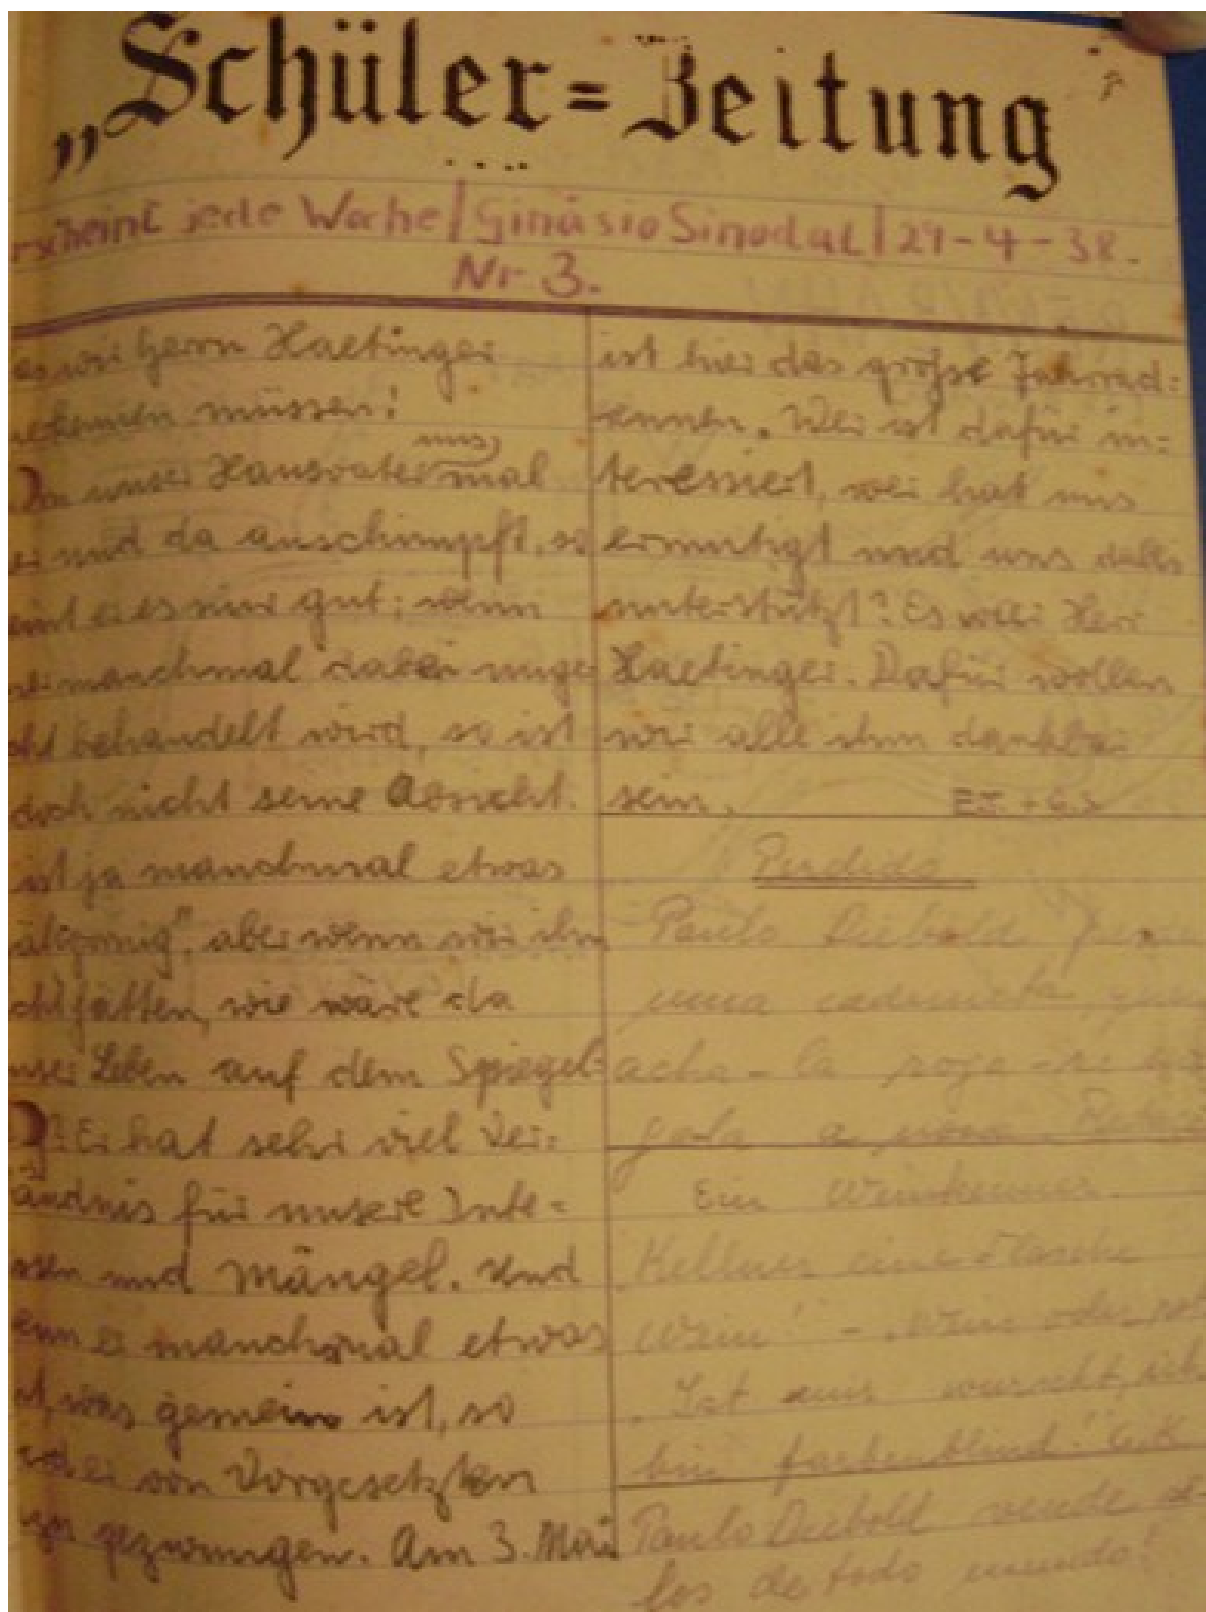 „Schüler=Zeitung
rscheint jede Woche | Ginásio Sinodal | 29-4-38.
Nr 3.
wir Herrn Haetinger
müssen!
unser Hausvater uns, mal
und da ausschimpft, so
er es nur gut; wenn
manchmal dabei unge
cht behandelt wird, so ist
doch nicht seine Absicht.
ist ja manchmal etwas
aber wenn wir ihn
hätten, wie wäre da
nser Leben auf dem Spiegel
? Er hat sehr viel Ver=
ändnis für unsere Inte=
ssen und Mängel. Und
enn er manchmal etwas
was gemein ist, so
von Vorgesetzten
gezwungen. Am 3. Mai
ist hier das große Fahrrad=
rennen. Wer ist dafür in=
teressiert, wer hat uns
ermutigt und uns dabei
unterstützt? Es war Herr
Haetinger. Dafür wollen
wir alle ihm dankbar
sein.
Perdido
Paulo Diebold
uma caderneta, quem
acha-la roga-se
a
Ein Weinkenner.
Kellner eine Flasche
Wein! - oder rot
Ist mir wurscht, ich
bin farbenblind!
Paulo Diebold vende
los de todo mundo!